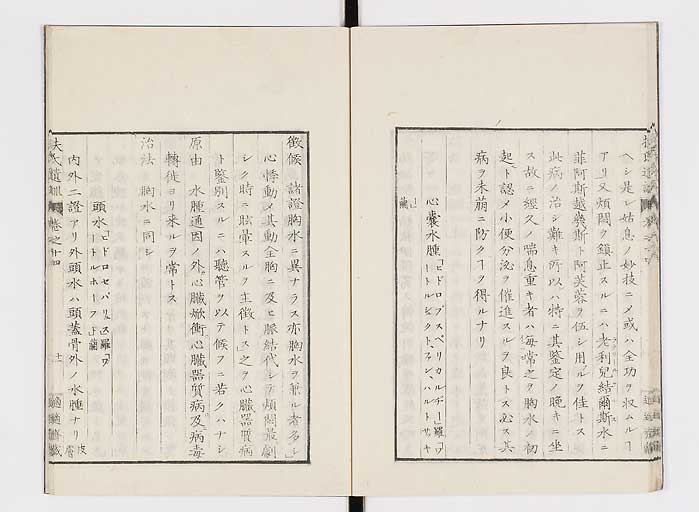 ヘシ是レ姑息ノ妙技ニメ或ハ全功ヲ収ムルヿ
アリ又煩悶ヲ鎮止スルニハ老利兒結爾斯水ニ
菲阿斯越幾斯ト阿芙蓉ヲ伍シ用ルヲ佳トス
此病ノ治シ難キ所以ハ特ニ其鑒定ノ晩キニ坐
ス故ニ經久ノ喘息重キ者ハ毎常之ヲ胸水ノ初
起ト認メ小便分泌ヲ催進スルヲ良トス必ス其
病ヲ未萠ニ防クヿヲ得ルナリ
心囊水腫
徴候 諸證胸水ニ異ナラス亦胸水ヲ兼ル者多シ
心悸動メ其動全胸ニ及ヒ脈結代シテ煩悶最劇
シク時ニ眩暈スルヲ主徴トス之ヲ心臓器質病
ト鑒別スルニハ聽管ヲ以テ候フニ若クハナシ
原由 水腫通因ノ外心臓焮衝心臓器質病及病毒
轉徙ヨリ來ルヲ常トス
治法 胸水ニ同シ
頭水
内外二證アリ外頭水ハ頭蓋骨外ノ水腫ナリ
扶氏遺訓 卷之十四 十一